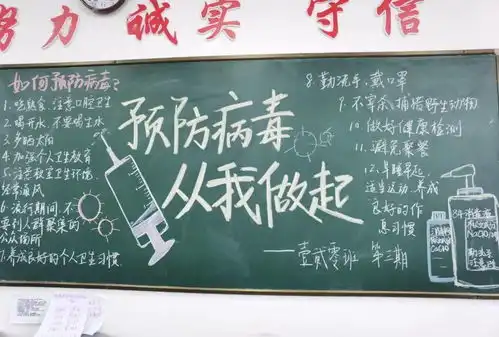 努力 诚实 守信
如何预防病毒?
1.吃熟食、注意口腔卫生
2.喝开水、不要喝生水
3.多晒太阳
4.加强个人卫生教育
5.注意教室卫生环境,
经常通风
6.流行期间,不
要到人群聚集的
公众场所
7.养成良好的个人卫生习惯
预防病毒
从我做起
——壹贰零班 第三期
8.勤洗手,戴口罩
9.不宰杀、捕猎野生动物
10.做好健康检测
11.避免聚餐
12.早睡早起,
适当运动,养成
良好的作
息习惯
84消毒液
NaClO